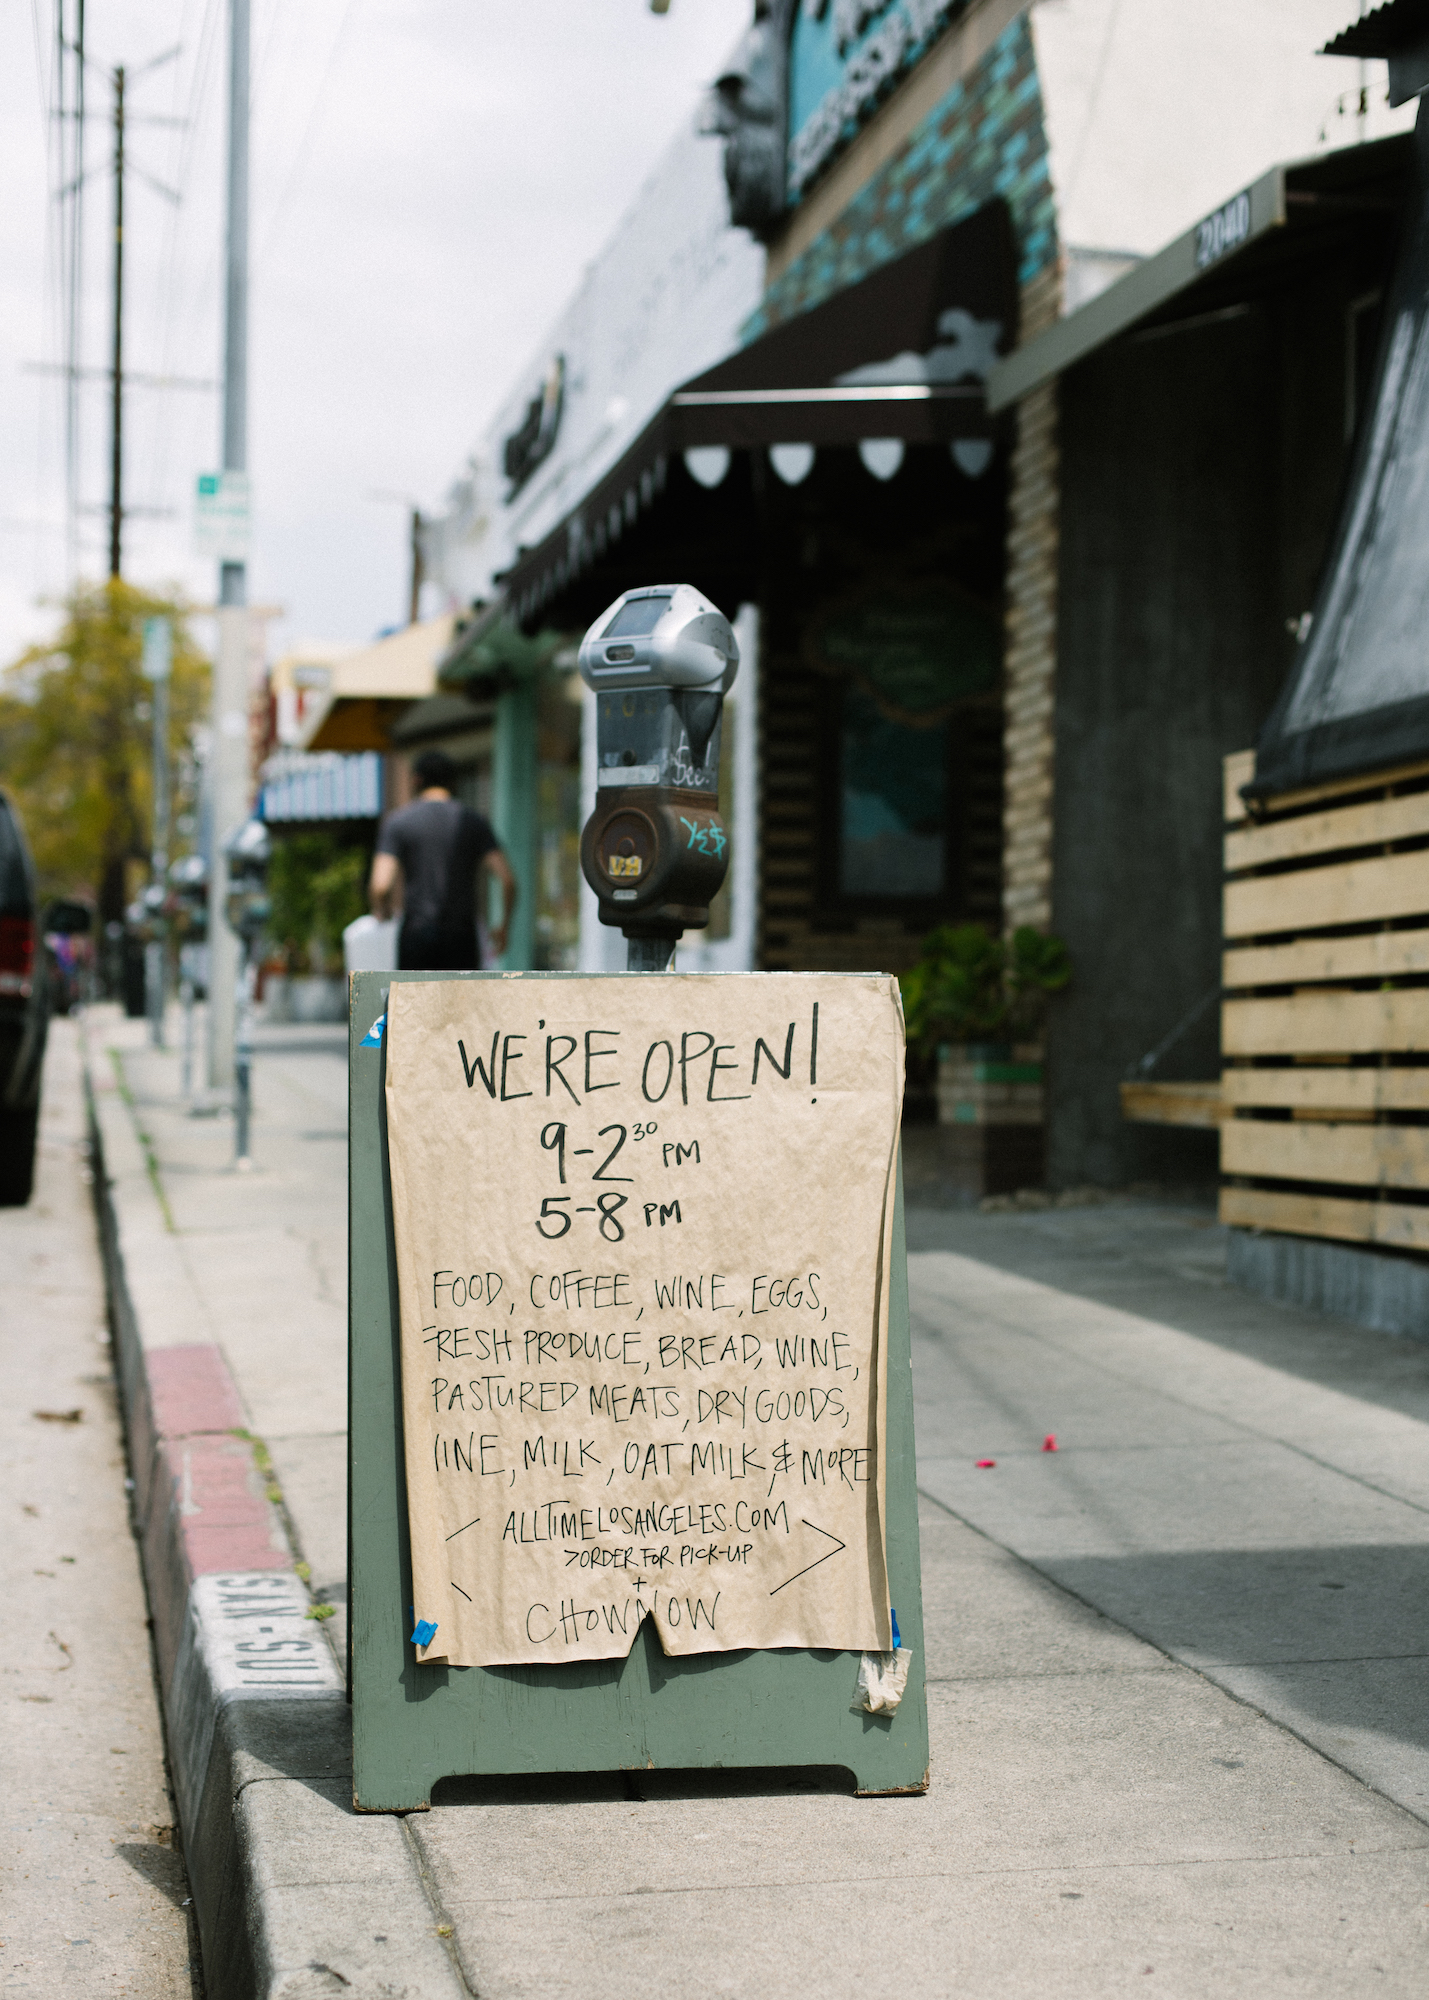 2040
YES
WE'RE OPEN!
9-2³⁰ PM
5-8 PM
FOOD, COFFEE, WINE, EGGS,
FRESH PRODUCE, BREAD, WINE,
PASTURED MEATS, DRY GOODS,
WINE, MILK, OAT MILK, & MORE
ALLTIMELOSANGELES.COM
>ORDER FOR PICK-UP
+
CHOWNOW